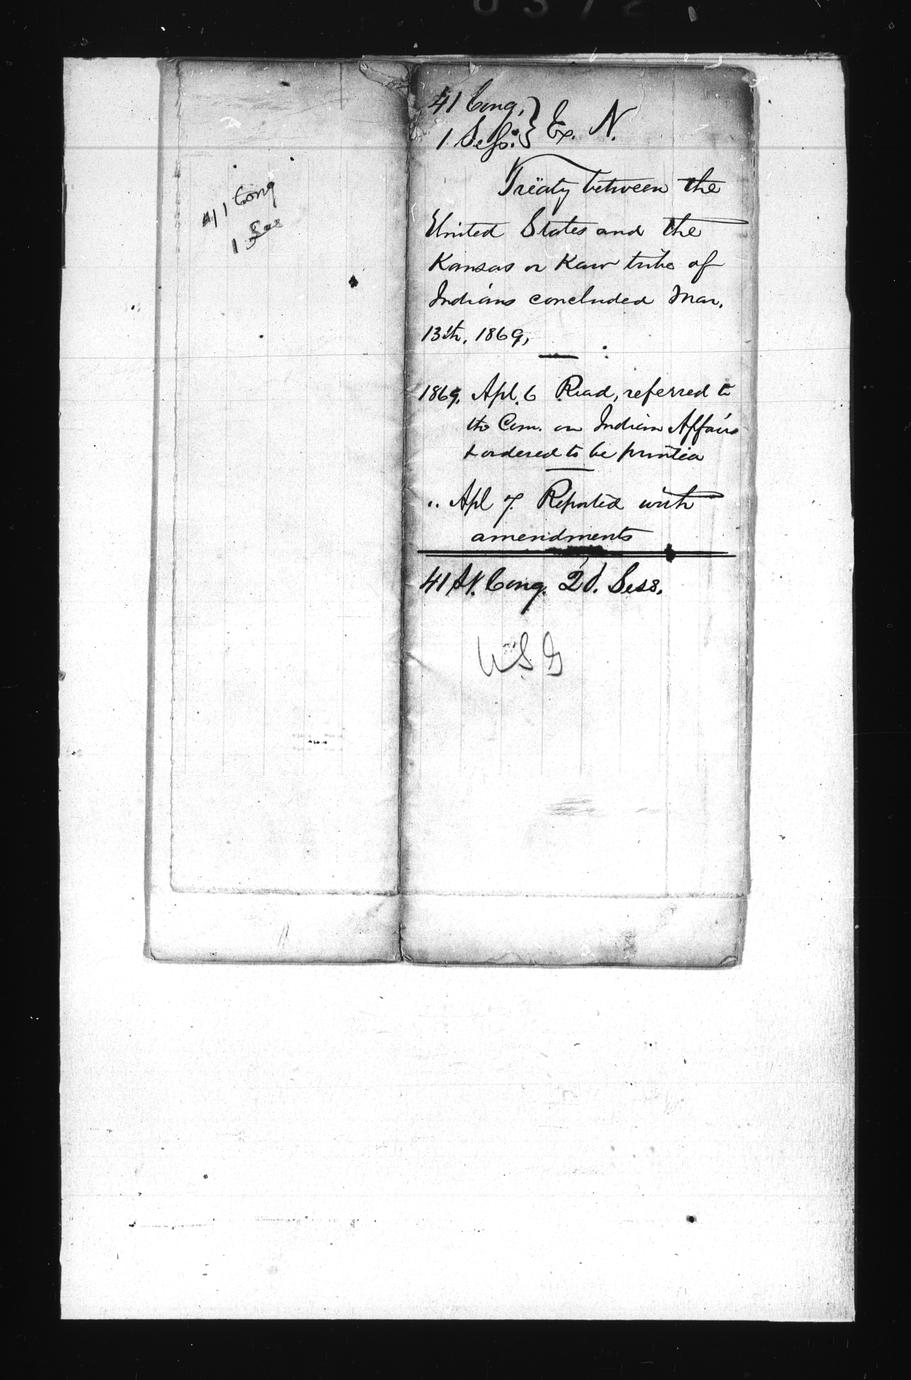 41 Cong
1 Ses
41 Cong, } Ex. N.
1 Sess. }
Treaty between the
United States and the
Kansas or Kaw tribe of
Indians concluded Mar.
13th, 1869,
1869. Apl. 6 Read, referred to
the Com. on Indian Affairs
& ordered to be printed
" Apl 7. Reported with
amendments
41st. Cong. 2d. Sess.